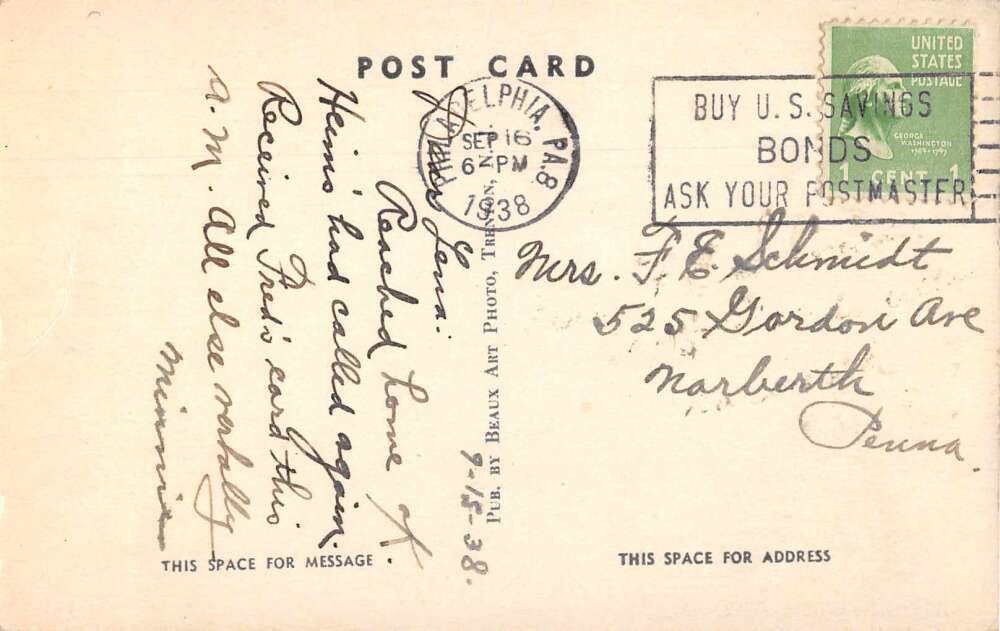 POST CARD
PHILADELPHIA, PA. 8
SEP 16
6 - PM
1938
BUY U.S. SAVINGS
BONDS
ASK YOUR POSTMASTER
UNITED
STATES
POSTAGE
GEORGE
WASHINGTON
1789-1797
1 CENT 1
9-15-38.
Dear Lena:
Reached home O.K.
Heim's had called again.
Received Fred's card this
a.M. All else verbally
Minnie
PUB. BY BEAUX ART PHOTO, TRENTON, N.J.
Mrs. F. E. Schmidt
525 Gordon Ave
Narberth
Penna.
THIS SPACE FOR MESSAGE
THIS SPACE FOR ADDRESS